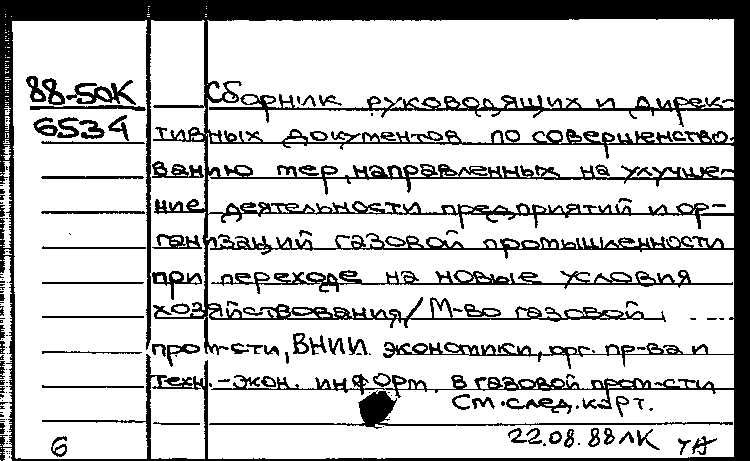 88-50К
6534
Сборник руководящих и дирек-
тивных документов по совершенство-
ванию мер, направленных на улучше-
ние деятельности предприятий и ор-
ганизаций газовой промышленности
при переходе на новые условия
хозяйствования / М-во газовой
пром-сти, ВНИИ экономики, орг. пр-ва и
техн.-экон. информ. в газовой пром-сти
См. след. карт.
22.08.88 ЛК
6